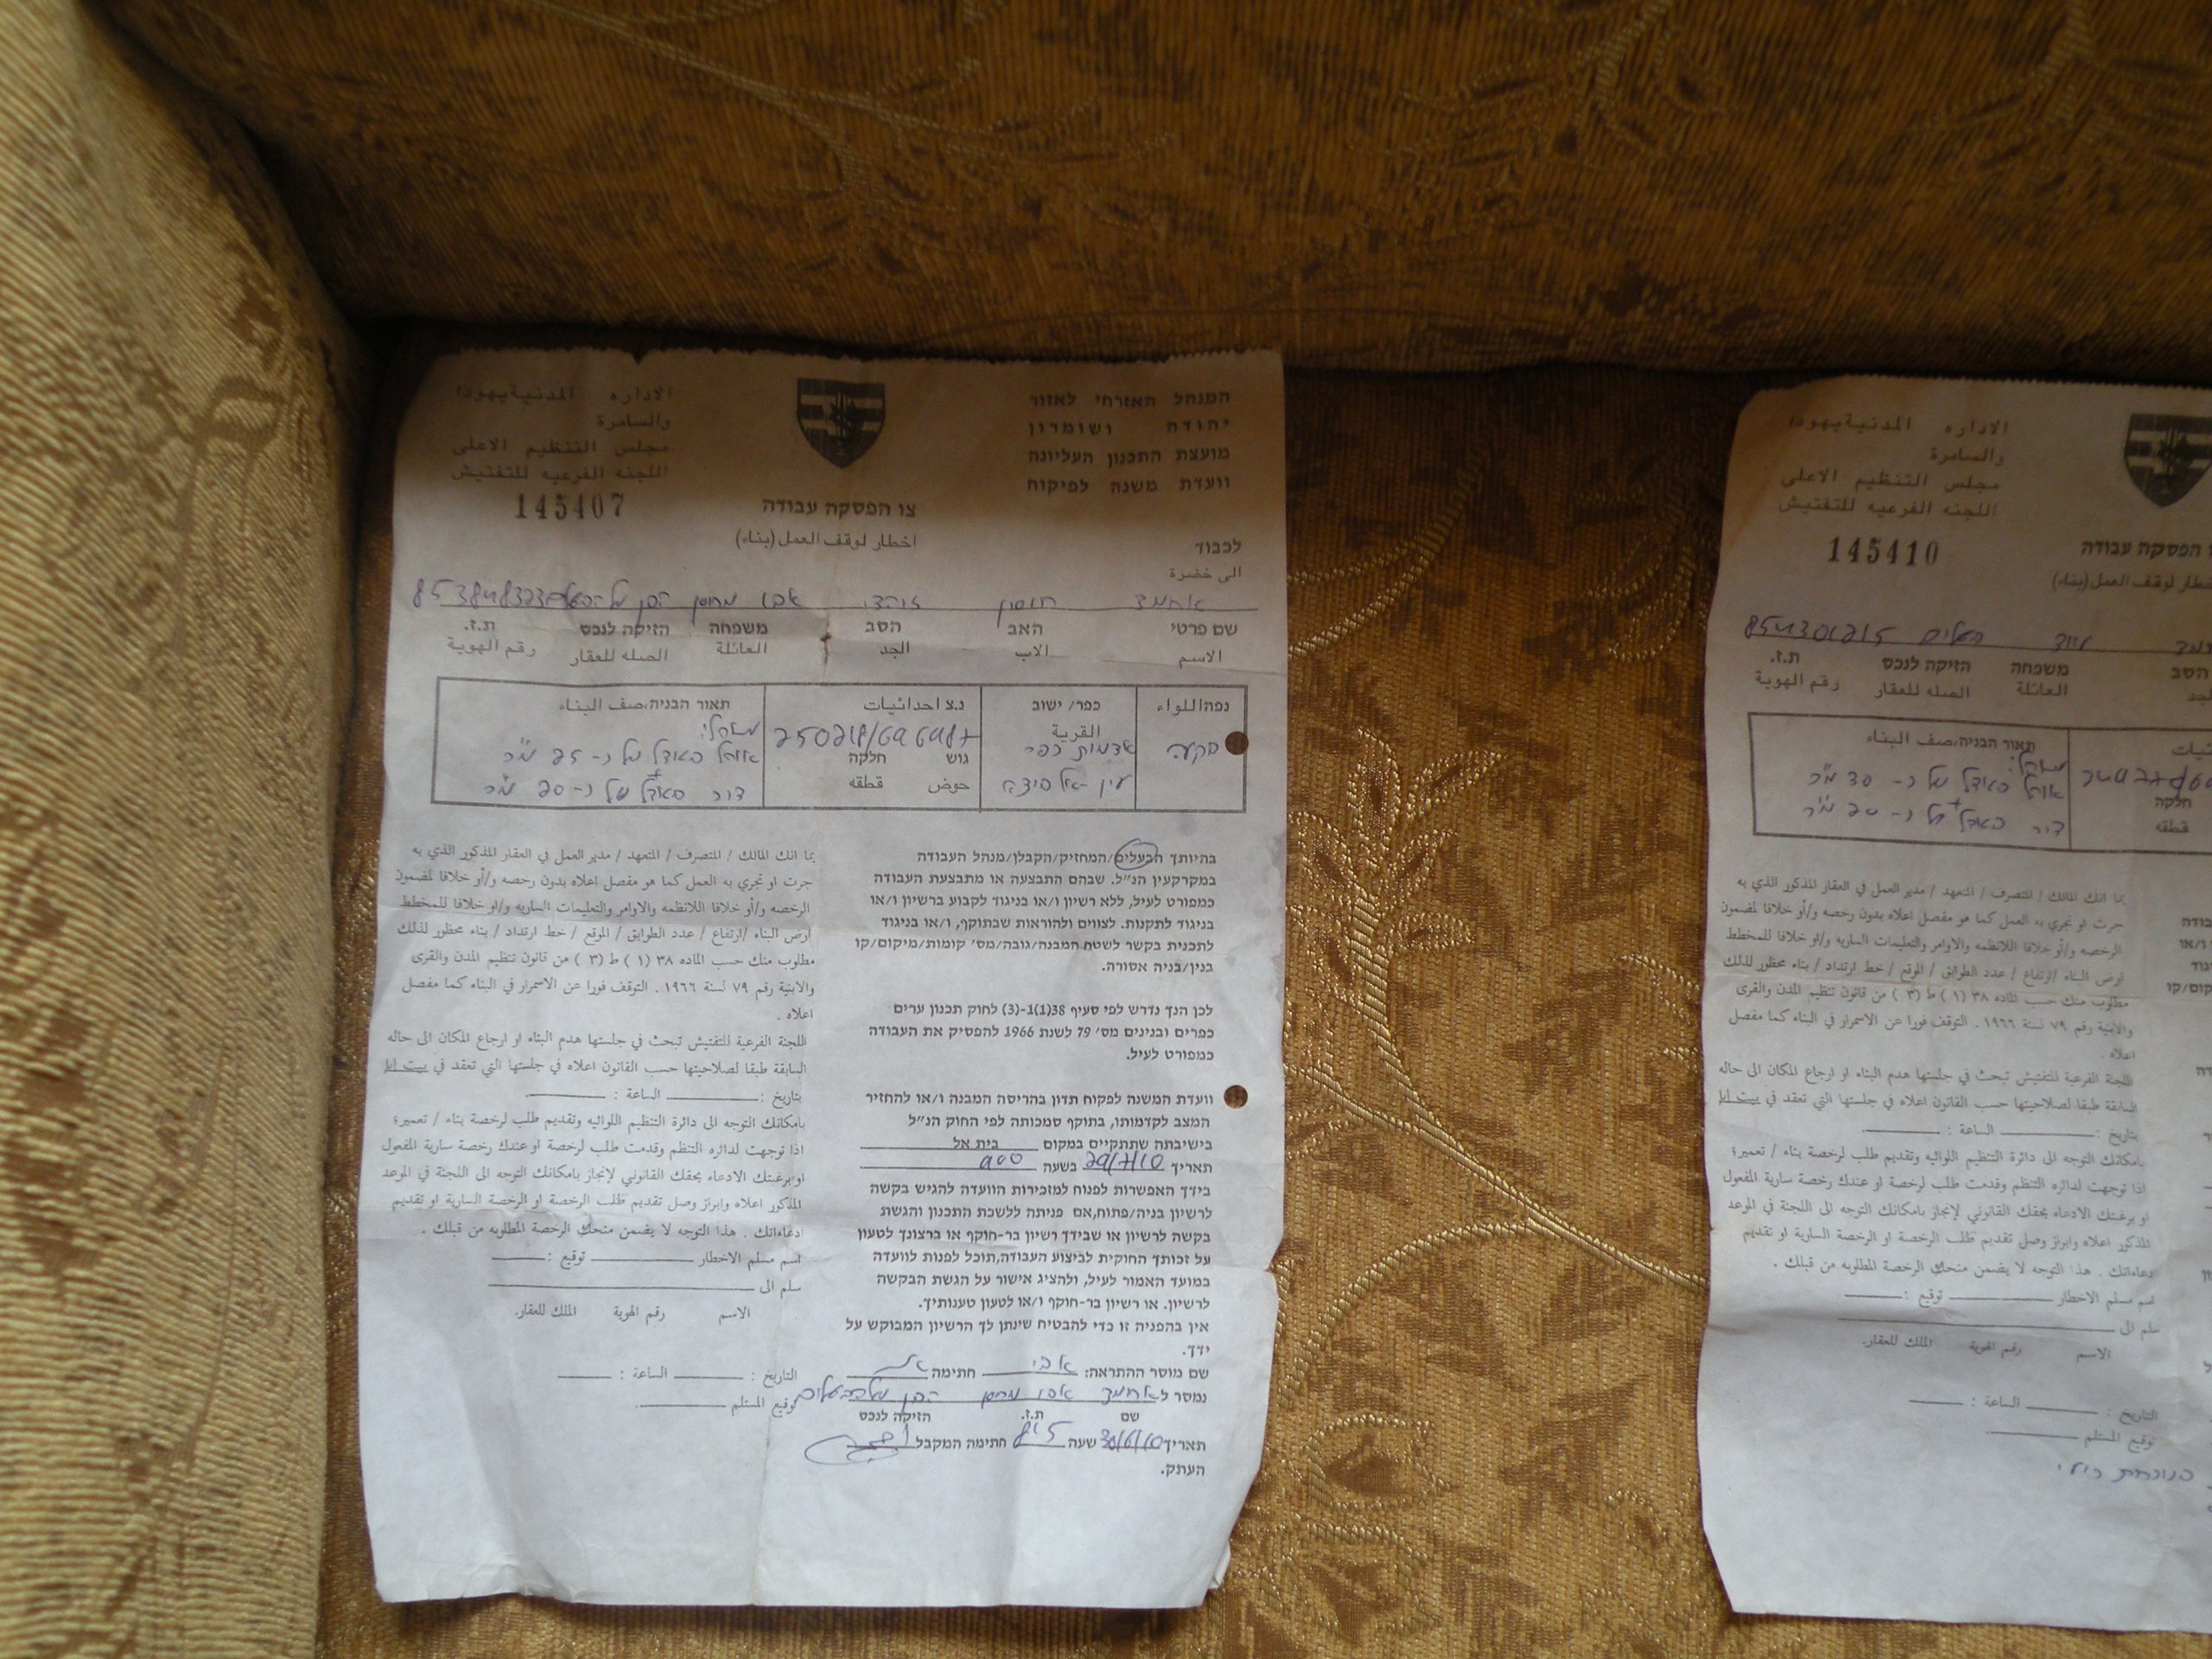 המנהל האזרחי לאזור
יהודה ושומרון
מועצת התכנון העליונה
וועדת משנה לפיקוח
الاداره المدنية يهودا
والسامرة
مجلس التنظيم الاعلى
اللجنه الفرعيه للتفتيش
145407
צו הפסקה עבודה
اخطار لوقف العمل (بناء)
לכבוד
الى حضرة
אחמד
שם פרטי האב הסב משפחה הזיקה לנכס ת.ז.
الاسم الاب الجد العائلة الصله للعقار رقم الهوية
נפה اللواء כפר/ ישוב נ.צ احداثيات תאור הבניה، صف البناء
القرية
גוש חלקה
حوض قطعه
בקעה
בהיותך הבעלים/המחזיק/הקבלן/מנהל העבודה
במקרקעין הנ"ל. שבהם התבצעה או מתבצעת העבודה
כמפורט לעיל, ללא רשיון ו/או בניגוד לקבוע ברשיון ו/או
בניגוד לתקנות. לצווים ולהוראות שבתוקף, ו/או בניגוד
לתכנית בקשר לשטח המבנה/גובה/מס' קומות/מיקום/קו
בנין/בניה אסורה.
לכן הנך נדרש לפי סעיף 38(1)-(3) לחוק תכנון ערים
כפרים ובנינים מס' 79 לשנת 1966 להפסיק את העבודה
כמפורט לעיל.
וועדת המשנה לפקוח תדון בהריסה המבנה ו/או להחזיר
המצב לקדמותו, בתוקף סמכותה לפי החוק הנ"ל
בישיבתה שתתקיים במקום בית אל
תאריך 29/7/10 בשעה 900
בידך האפשרות לפנות למזכירות הוועדה להגיש בקשה
לרשיון בניה/פתוח,אם פניתה ללשכת התכנון והגשת
בקשה לרשיון או שבידך רשיון בר-חוקף או ברצונך לטעון
על זכותך החוקית לביצוע העבודה,תוכל לפנות לוועדה
במועד האמור לעיל, ולהציג אישור על הגשת הבקשה
לרשיון. או רשיון בר-חוקף ו/או לטעון טענותיך.
אין בהפניה זו כדי להבטיח שינתן לך הרשיון המבוקש על
ידך.
שם מוסר ההתראה: אבי חתימה
נמסר ל אחמד
שם ת.ז. הזיקה לנכס
תאריך 30/6/10 שעה חתימה המקבל
העתק.
بما انك المالك / المتصرف / المتعهد / مدير العمل في العقار المذكور الذي به
جرت او تجري به العمل كما هو مفصل اعلاه بدون رخصه و/أو خلافا لمضمون
الرخصه و/أو خلافا اللانظمه والاوامر والتعليمات الساريه و/او خلافا للمخطط
ارض البناء /ارتفاع / عدد الطوابق / الموقع / خط ارتداد / بناء محظور لذلك
مطلوب منك حسب الماده ٣٨ (١) ط (٣) من قانون تنظيم المدن والقرى
والابنية رقم ٧٩ لسنة ١٩٦٦ . التوقف فورا عن الاسمرار في البناء كما مفصل
اعلاه .
اللجنة الفرعية للتفتيش تبحث في جلستها هدم البناء او ارجاع المكان الى حاله
السابقة طبقا لصلاحيتها حسب القانون اعلاه في جلستها التي تعقد في بيت ايل
بتاريخ : الساعة :
بامكانك التوجه الى دائرة التنظيم اللوائيه وتقديم طلب لرخصة بناء / تعمير؛
اذا توجهت لدائره التنظم وقدمت طلب لرخصة او عندك رخصة سارية المفعول
او برغبتك الادعاء بحقك القانوني لإنجاز بامكانك التوجه الى اللجنة في الموعد
المذكور اعلاه وابراز وصل تقديم طلب الرخصة او الرخصة السارية او تقديم
ادعاءاتك . هذا التوجه لا يضمن منحك الرخصة المطلوبه من قبلك .
اسم مسلم الاخطار توقيع :
سلم الى
الاسم رقم الهوية الملك للعقار.
التاريخ : الساعة :
توقيع المستلم
الاداره المدنية يهودا
والسامرة
مجلس التنظيم الاعلى
اللجنه الفرعيه للتفتيش
145410
הפסקה עבודה
لوقف العمل (بناء)
הסב משפחה הזיקה לנכס ת.ז.
العائلة الصله للعقار رقم الهوية
תאור הבניה، صف البناء
חלקה
قطعه
بما انك المالك / المتصرف / المتعهد / مدير العمل في العقار المذكور الذي به
جرت او تجري به العمل كما هو مفصل اعلاه بدون رخصه و/أو خلافا لمضمون
الرخصه و/أو خلافا اللانظمه والاوامر والتعليمات الساريه و/او خلافا للمخطط
ارض البناء /ارتفاع / عدد الطوابق / الموقع / خط ارتداد / بناء محظور لذلك
مطلوب منك حسب الماده ٣٨ (١) ط (٣) من قانون تنظيم المدن والقرى
والابنية رقم ٧٩ لسنة ١٩٦٦ . التوقف فورا عن الاسمرار في البناء كما مفصل
اعلاه .
اللجنة الفرعية للتفتيش تبحث في جلستها هدم البناء او ارجاع المكان الى حاله
السابقة طبقا لصلاحيتها حسب القانون اعلاه في جلستها التي تعقد في بيت ايل
بتاريخ : الساعة :
بامكانك التوجه الى دائرة التنظيم اللوائيه وتقديم طلب لرخصة بناء / تعمير؛
اذا توجهت لدائره التنظم وقدمت طلب لرخصة او عندك رخصة سارية المفعول
او برغبتك الادعاء بحقك القانوني لإنجاز بامكانك التوجه الى اللجنة في الموعد
المذكور اعلاه وابراز وصل تقديم طلب الرخصة او الرخصة السارية او تقديم
دعاءاتك . هذا التوجه لا يضمن منحك الرخصة المطلوبه من قبلك .
اسم مسلم الاخطار توقيع :
سلم الى
الاسم رقم الهوية الملك للعقار.
التاريخ : الساعة :
توقيع المستلم